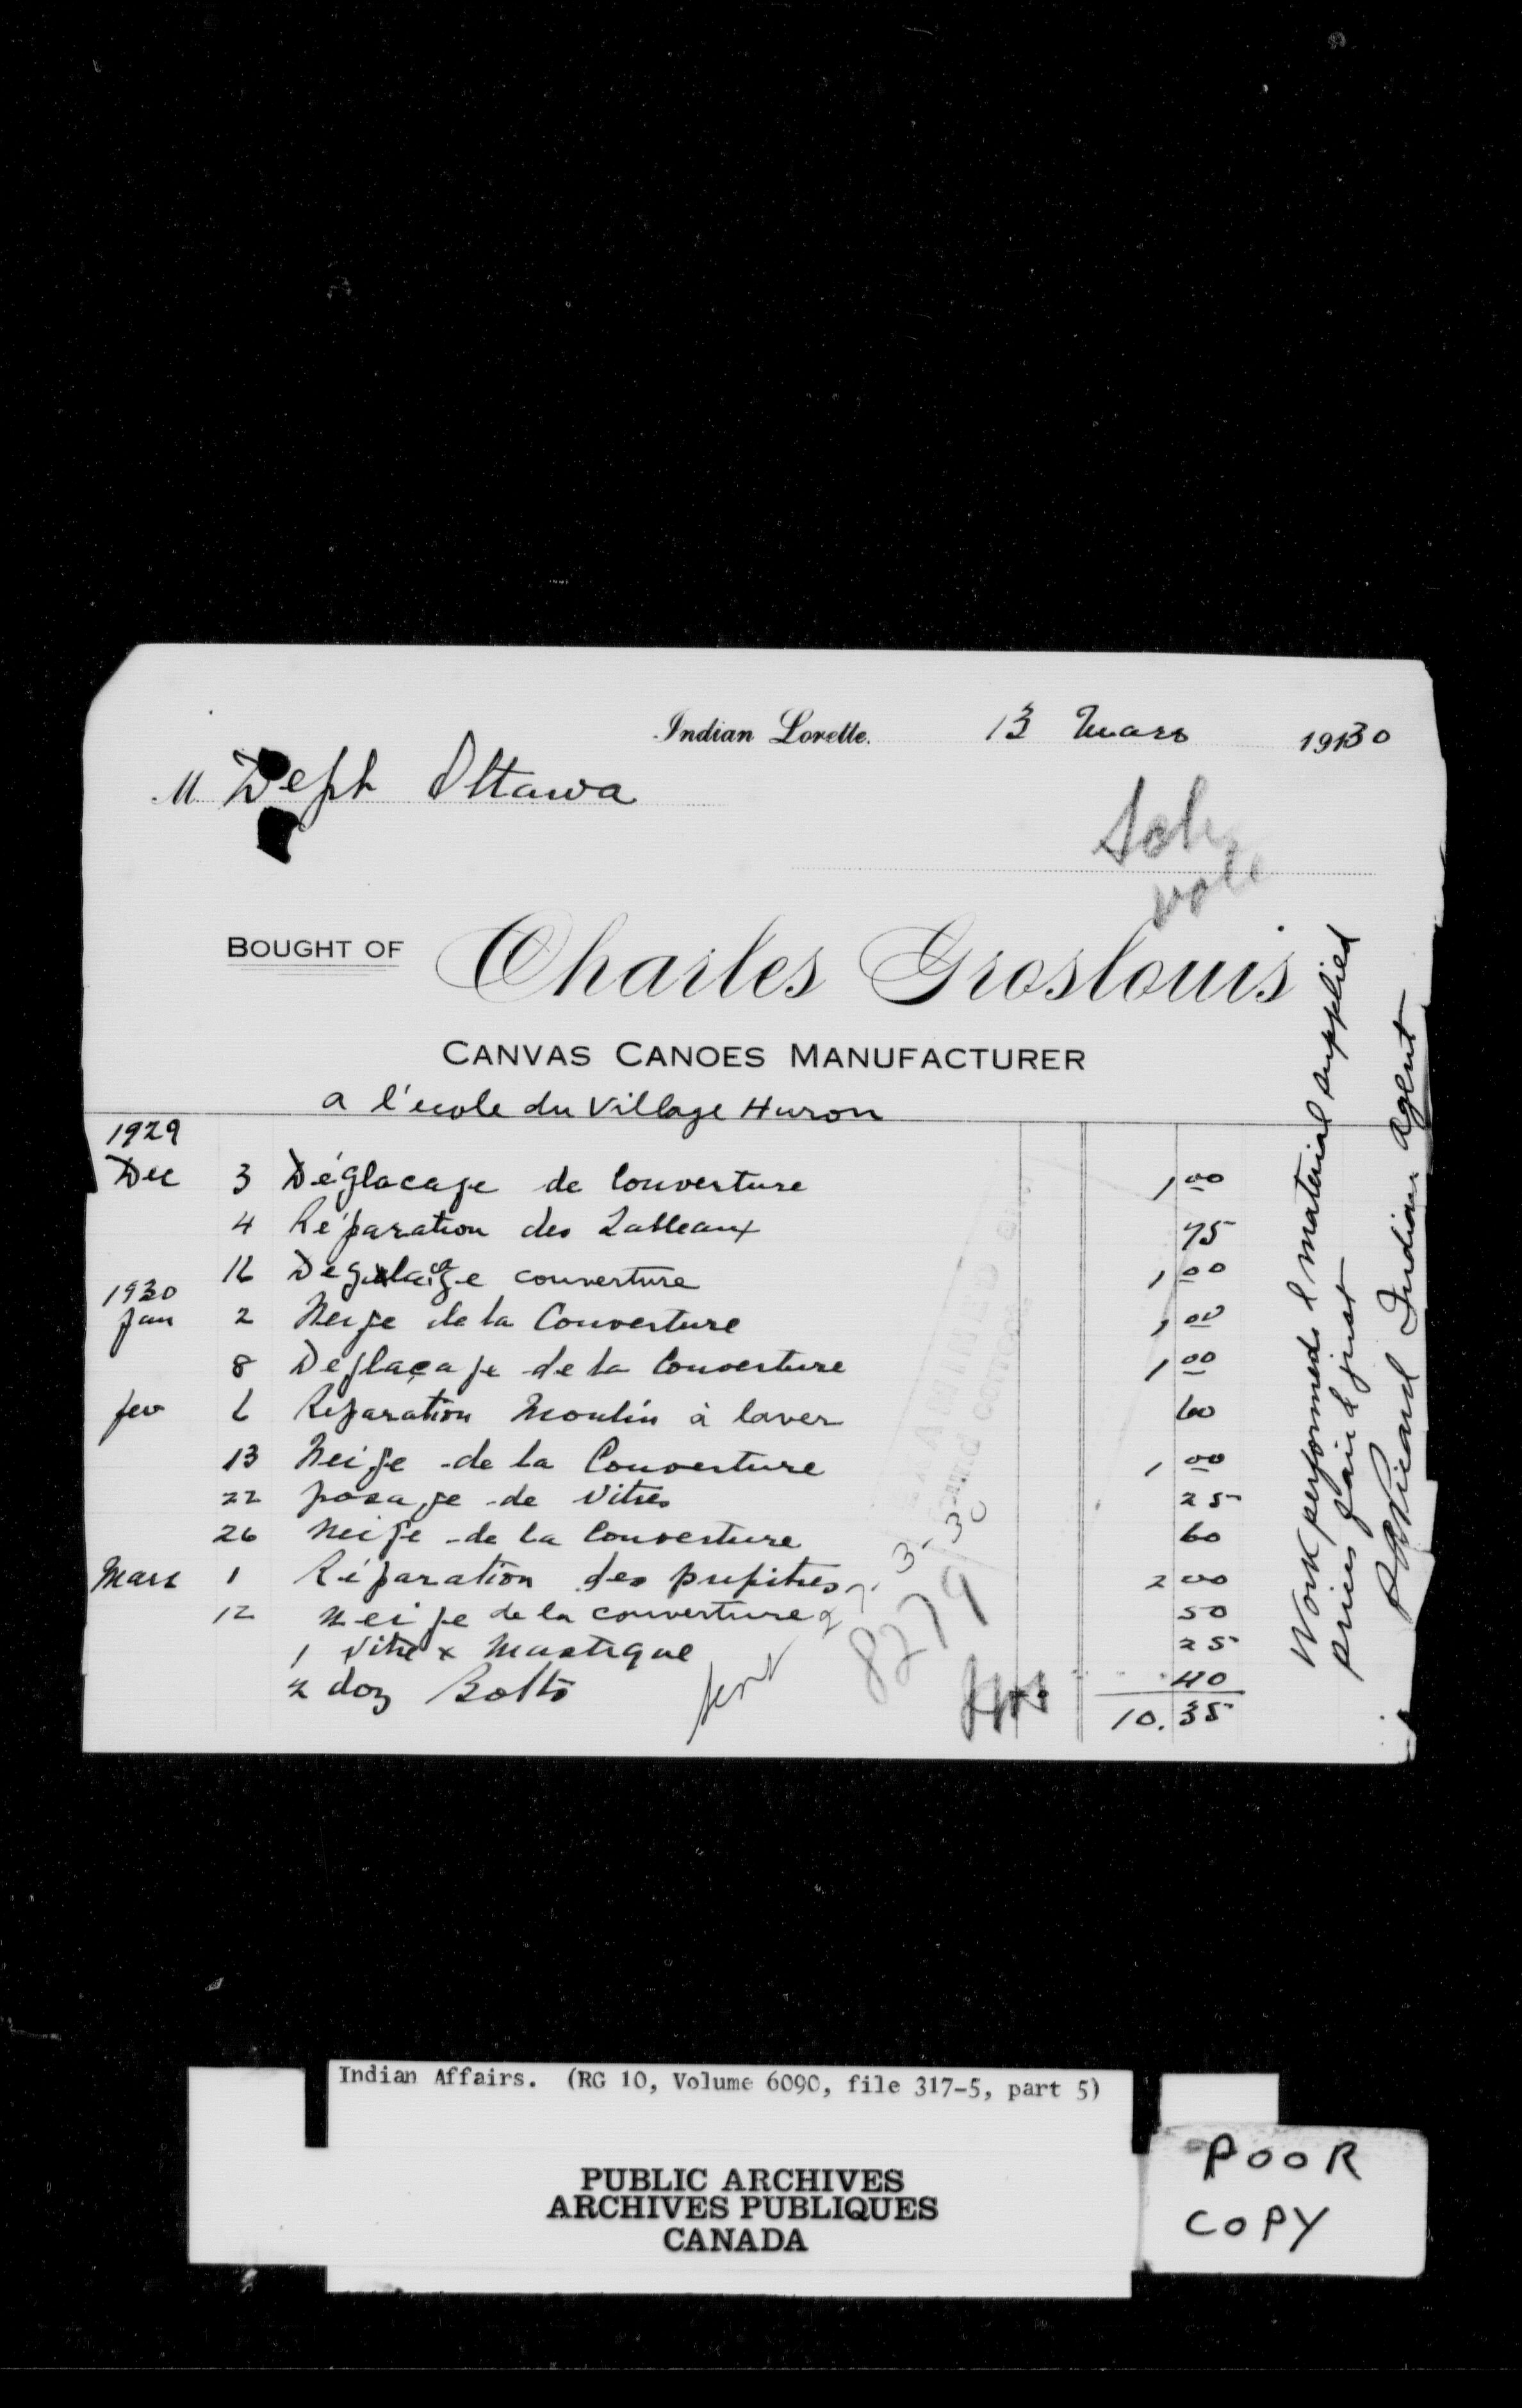 Indian Lorette. 13 Mars 1930
M Dept Ottawa
Sch
vote
BOUGHT OF Charles Groslouis
CANVAS CANOES MANUFACTURER
a l'ecole du Village Huron
1929
Dec 3 Déglacage de Couverture 1 00
4 Réparation des Tableaux 75
16 couverture 1 00
1930
Jan 2 Neige de la Couverture 1 00
8 Deglaçage de la Couverture 1 00
fev 6 Reparation Moulin à laver 60
13 Neige de la Couverture 1 00
22 posage de Vitres 25
26 Neige de la Couverture 60
Mars 1 Réparation des pupitres 2 00
12 neige de la couverture 50
1 Vitre x Mastique 25
2 doz Bolts 40
10.35
8279
Work performed & material supplied
prices fair & just
Picard Indian Agent
Indian Affairs. (RG 10, Volume 6090, file 317-5, part 5)
PUBLIC ARCHIVES
ARCHIVES PUBLIQUES
CANADA
POOR
COPY